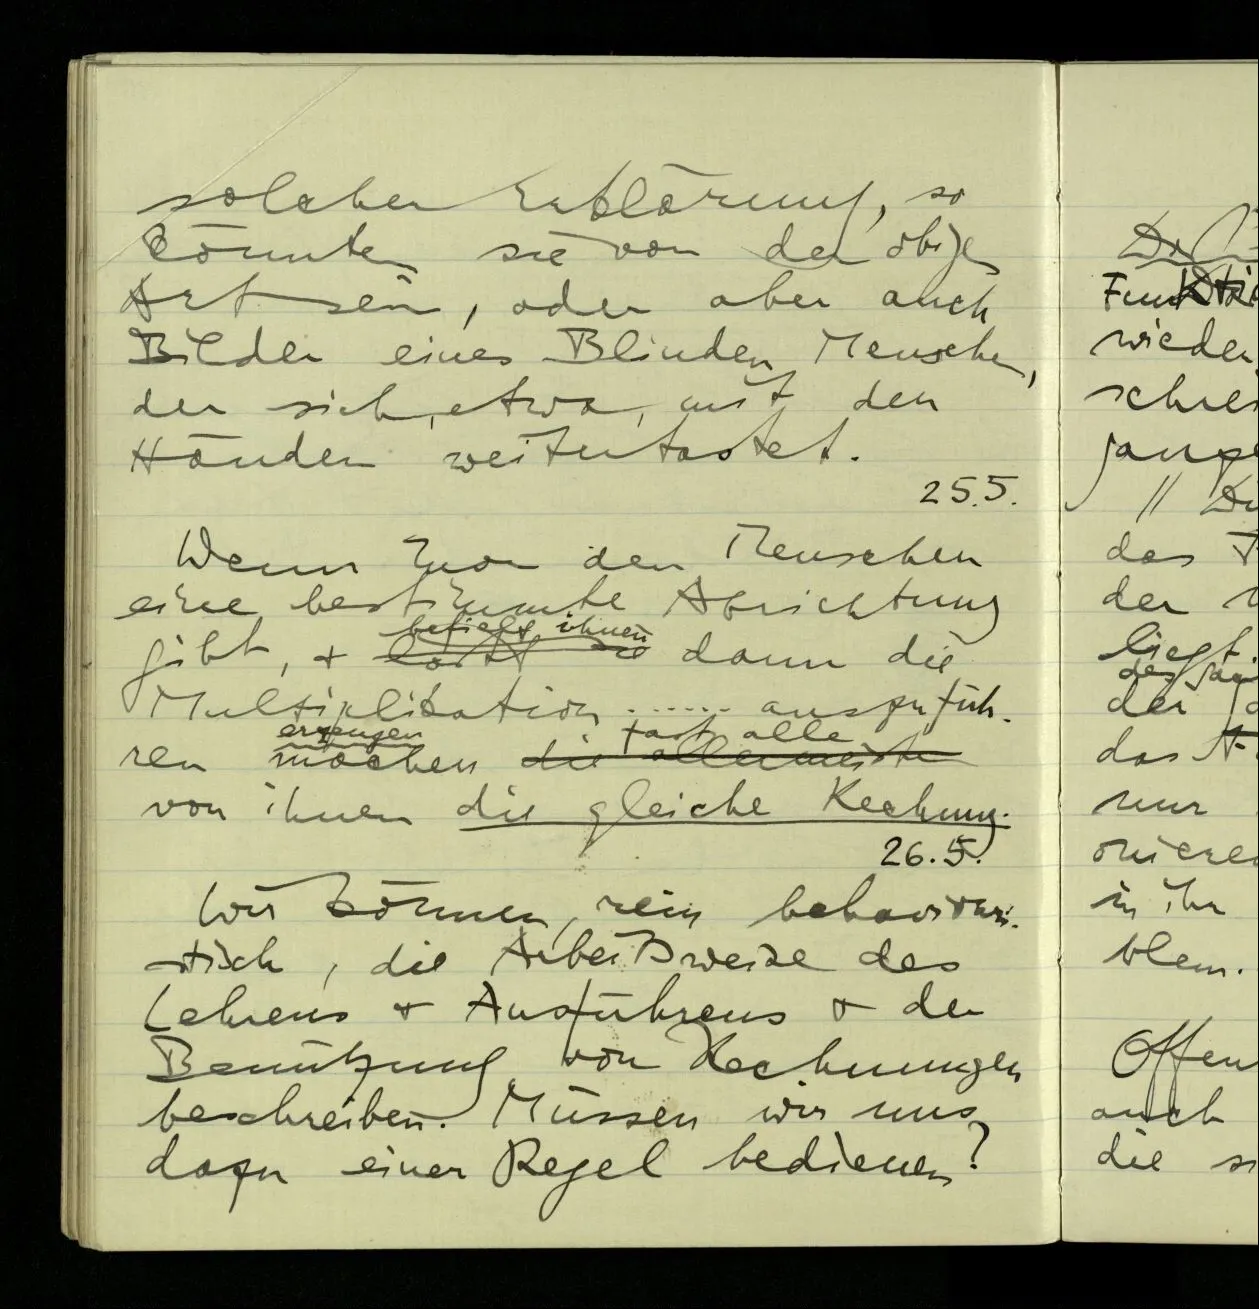 solcher Erklärung, so
könnten sie von der obigen
Art sein, oder aber auch
Bilder eines Blinden Menschen,
der sich, etwa, mit den
Händen weitertastet.
25.5.
Wenn man den Menschen
eine bestimmte Abrichtung
befiehlt ihnen
gibt, + läßt sie dann die
Multiplikation ...... auszufüh-
erzeugen fast alle
ren machen die allermeisten
von ihnen die gleiche Rechnung.
26.5.
Wir können, rein behavioris-
tisch, die Arbeitsweise des
Lehrens + Ausführens + der
Benützung von Rechnungen
beschreiben. Müssen wir uns
dazu einer Regel bedienen?
wieder
das
der
liegt.
der
das
nur
in ihr
blem.
Offen
auch
die